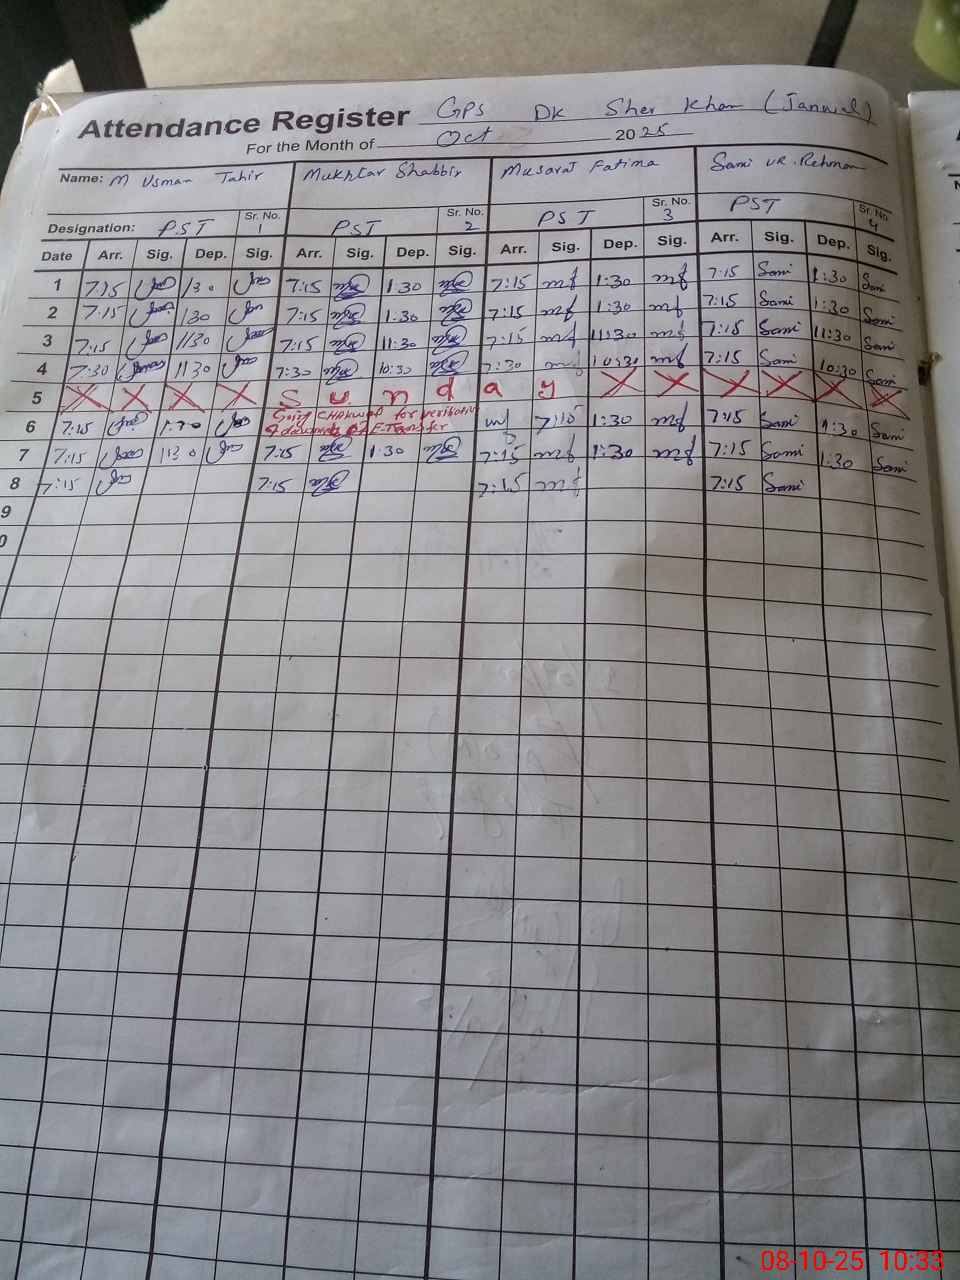 Attendance Register GPS DK Sher Khan (Janwal)
For the Month of Oct 2025
Name: M Usman Tahir Mukhtar Shabbir Musarat Fatima Sami ur. Rehman
Designation: PST Sr. No. 1 PST Sr. No. 2 PST Sr. No. 3 PST Sr. No. 4
Date Arr. Sig. Dep. Sig. Arr. Sig. Dep. Sig. Arr. Sig. Dep. Sig. Arr. Sig. Dep. Sig.
1 7:15 1:30 7:15 1:30 7:15 mf 1:30 mf 7:15 Sami 1:30 Sami
2 7:15 1:30 7:15 1:30 7:15 mf 1:30 mf 7:15 Sami 1:30 Sami
3 7:15 11:30 7:15 11:30 7:15 mf 11:30 mf 7:15 Sami 11:30 Sami
4 7:30 11:30 7:30 10:30 7:30 mf 10:30 mf 7:15 Sami 10:30 Sami
5 X X X X S u n d a y X X X X X X
6 7:15 1:30 going CHAKWAL for verification mf 7:15 1:30 mf 7:15 Sami 1:30 Sami
E.Transfer
7 7:15 1:30 7:15 1:30 7:15 mf 1:30 mf 7:15 Sami 1:30 Sami
8 7:15 7:15 7:15 mf 7:15 Sami
9
0
08-10-25 10:33